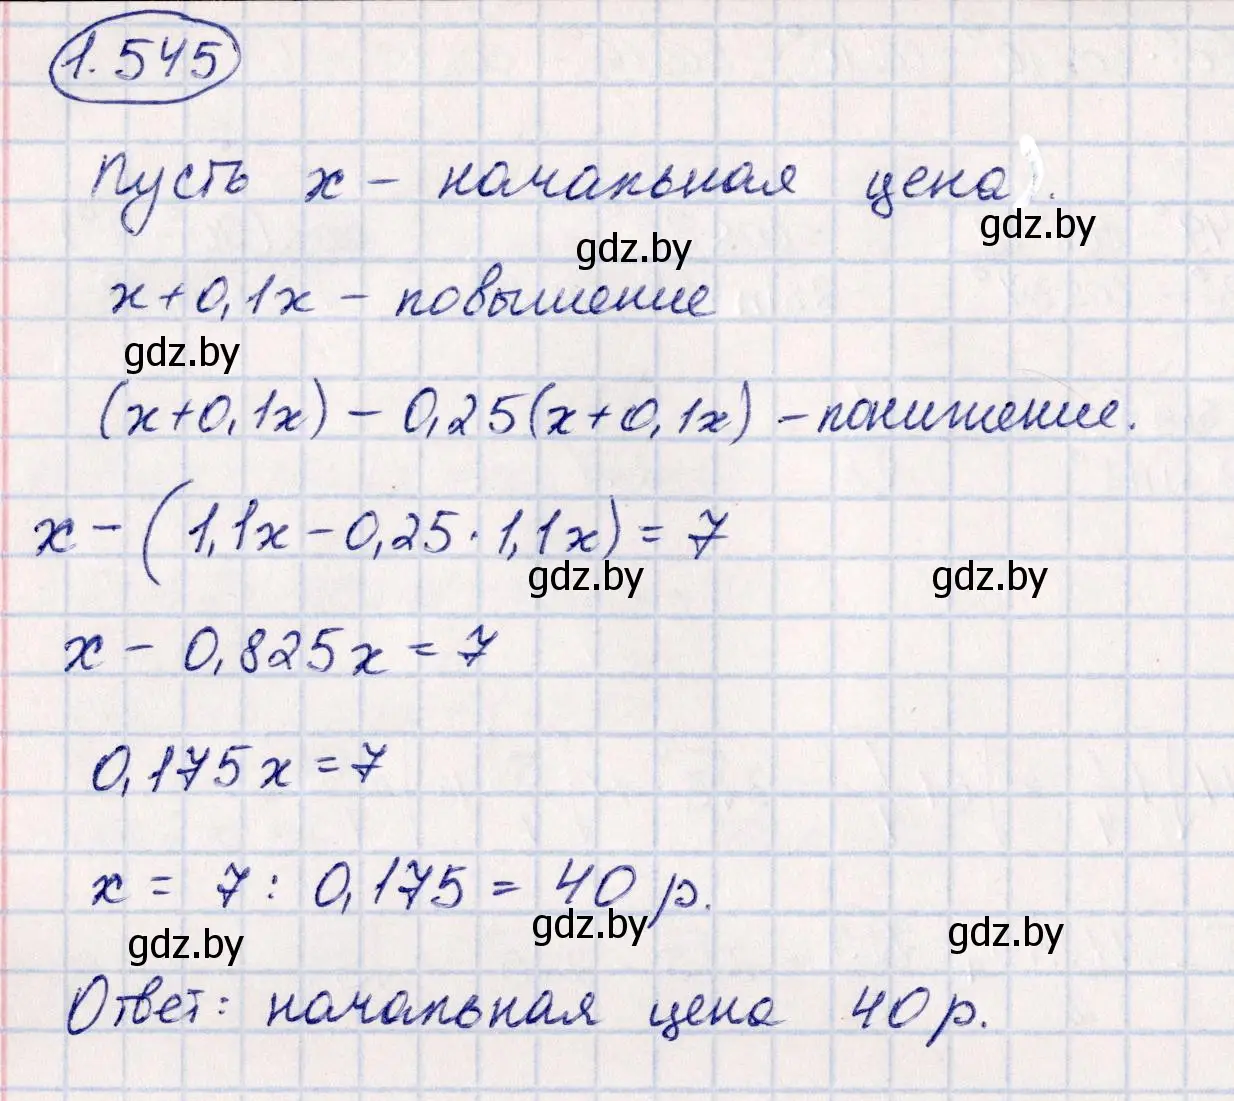 1.545
Пусть x – начальная цена.
gdz.by
gdz.by
x+0,1x – повышение
gdz.by
(x+0,1x) – 0,25(x+0,1x) – понижение.
x – (1,1x – 0,25·1,1x) = 7
gdz.by
gdz.by
x – 0,825x = 7
0,175x = 7
x = 7 : 0,175 = 40 р.
gdz.by
gdz.by
gdz.by
Ответ: начальная цена 40 р.